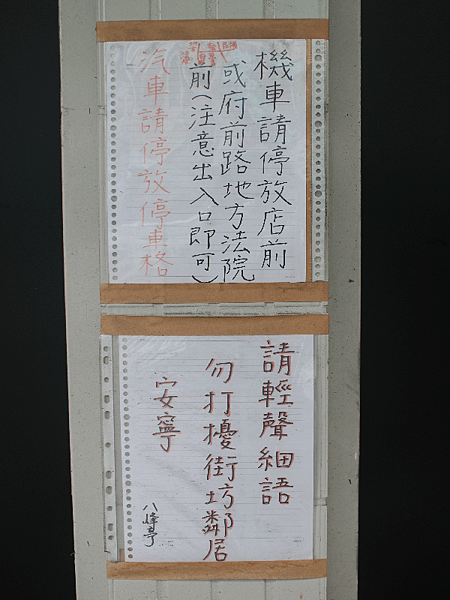 機車請停放店前
或府前路地方法院
前(注意出入口即可)
汽車請停放停車格
請輕聲細語
勿打擾街坊鄰居
安寧
八峰亭